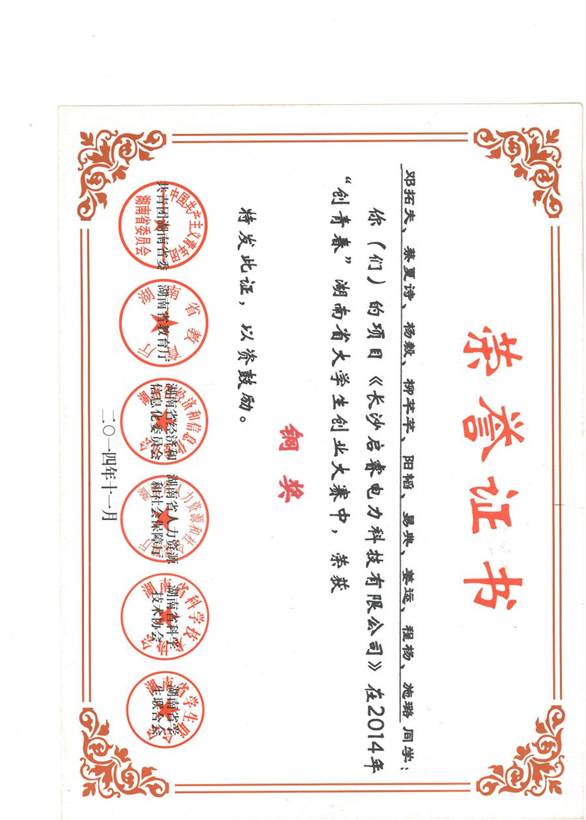 荣誉证书
邓拓夫、蔡夏诗、杨毅、柳芊芊、阳韬、易典、姜运、程杨、施璐 同学：
你（们）的项目《长沙启睿电力科技有限公司》在2014年
“创青春”湖南省大学生创业大赛中，荣获
铜奖
特发此证，以资鼓励。
共青团湖南省委
湖南省教育厅
湖南省经济和
信息化委员会
湖南省人力资源
和社会保障厅
湖南省科学
技术协会
湖南省学
生联合会
二〇一四年十一月